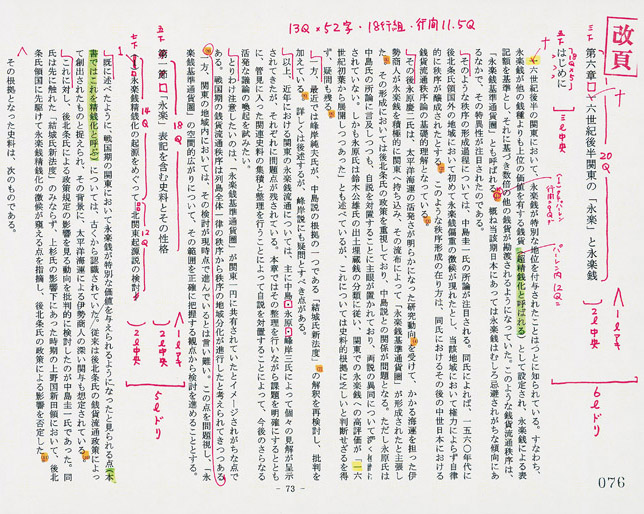 13Q×52字・18行組・行間11.5Q
改頁
第六章 十六世紀後半関東の「永楽」と永楽銭
はじめに
十六世紀後半の関東において、永楽銭が特別な地位を付与されたことはつとに知られている。すなわち、
永楽銭が他の銭種よりも上位の価値を有する銭貨（超精銭化と呼ばれる）として設定され、永楽銭による表
記額を基準とし、それに基づき数倍の他の銭貨が勘渡されるようになっていた。このような銭貨流通秩序は、
「永楽銭基準通貨圏」とも呼ばれる。概ね当該期日本にあっては永楽銭はむしろ忌避されがちな傾向にあ
るなかで、その特異性が注目されたのである。
そのような秩序の形成過程については、中島圭一氏の所論が注目される。同氏によれば、一五六〇年代に
後北条氏領国外の地域において初めて永楽銭偏重の徴候が現れたとし、当該地域において権力によらず自律
的に秩序が醸成されたとする。このような秩序形成の在り方は、同氏におけるその後の中世日本における
銭貨流通秩序論の基礎的理解となっている。
その後永原慶二氏は、太平洋海運の活発さが明らかになった研究動向を受けて、かかる海運を担った伊
勢商人が永楽銭を積極的に関東へ持ち込み、その流布によって「永楽銭基準通貨圏」が形成されたと主張し
た。その形成においては後北条氏の政策を重視しており、中島説との関係が問題となる。ただし永原氏は
中島氏の所論に言及しつつも、自説を対置することに主眼が置かれており、両説の異同について
されていない。しかも永原氏は鈴木公雄氏の出土埋蔵銭の分類に従い、関東での永楽銭への高評価が「一六
世紀初業から展開しつつあった」とも述べているが、これについては史料的根拠に乏しいと判断せざるを得
ず、疑問も残る。
一方、最近では峰岸純夫氏が、中島説の根拠の一つである「結城氏新法度」の解釈を再検討し、批判を
加えている。詳しくは後述するが、峰岸説にも疑問とすべき点がある。
以上、近年における関東の永楽銭流通については、主に中島・永原・峰岸三氏によって個々の見解が呈示
されてきたが、それぞれに問題点が残されている。本章ではその整理を行いながら課題を明確にするととも
に、管見に入った関連史料の集積と整理を行うことによって自説を対置することによって、今後のさらなる
活発な議論の喚起を試みたい。
とりわけ注意したいのは、「永楽銭基準通貨圏」が関東一円に共有されていたとイメージされがちな点で
ある。戦国期の銭貨流通秩序は列島全体一律の秩序から秩序の地域分化が進行したと考えられてきつつある
一方、関東の地域内においては、その検討が現時点で進んでいるとは言い難い。この点を問題視し、「永
楽銭基準通貨圏」の空間的広がりについて、その範囲を正確に把握する観点から検討を進めることとする。
第一節 「永楽」表記を含む史料とその性格
永楽銭精銭化の起源をめぐって 北関東起源説の検討
既に述べたように、戦国期の関東において永楽銭が特別な価値を与えられるようになったと見られる点（本
書ではこれを精銭化と呼ぶ）については、古くから認識されていた。従来は後北条氏の銭貨流通政策によっ
て創出されたものと捉えられ、その背景に、太平洋海運による伊勢商人の深い関与も想定されている。
これに対し、後北条氏による政策規定の影響を見る動向を批判的に検討したのが中島圭一氏である。同
氏は先に触れた「結城氏新法度」のみならず、上杉氏の影響下にあった時期の上野国新田領において、後北
条氏領国に先駆けて永楽銭精銭化の徴候が窺える点を指摘し、後北条氏の政策による影響を否定した。
その根拠となった史料は、次のものである。
- 73 -
076
20Q
3l中央
2l中央
6lドリ
18Q
14Q
12Q
2l中央
5lドリ